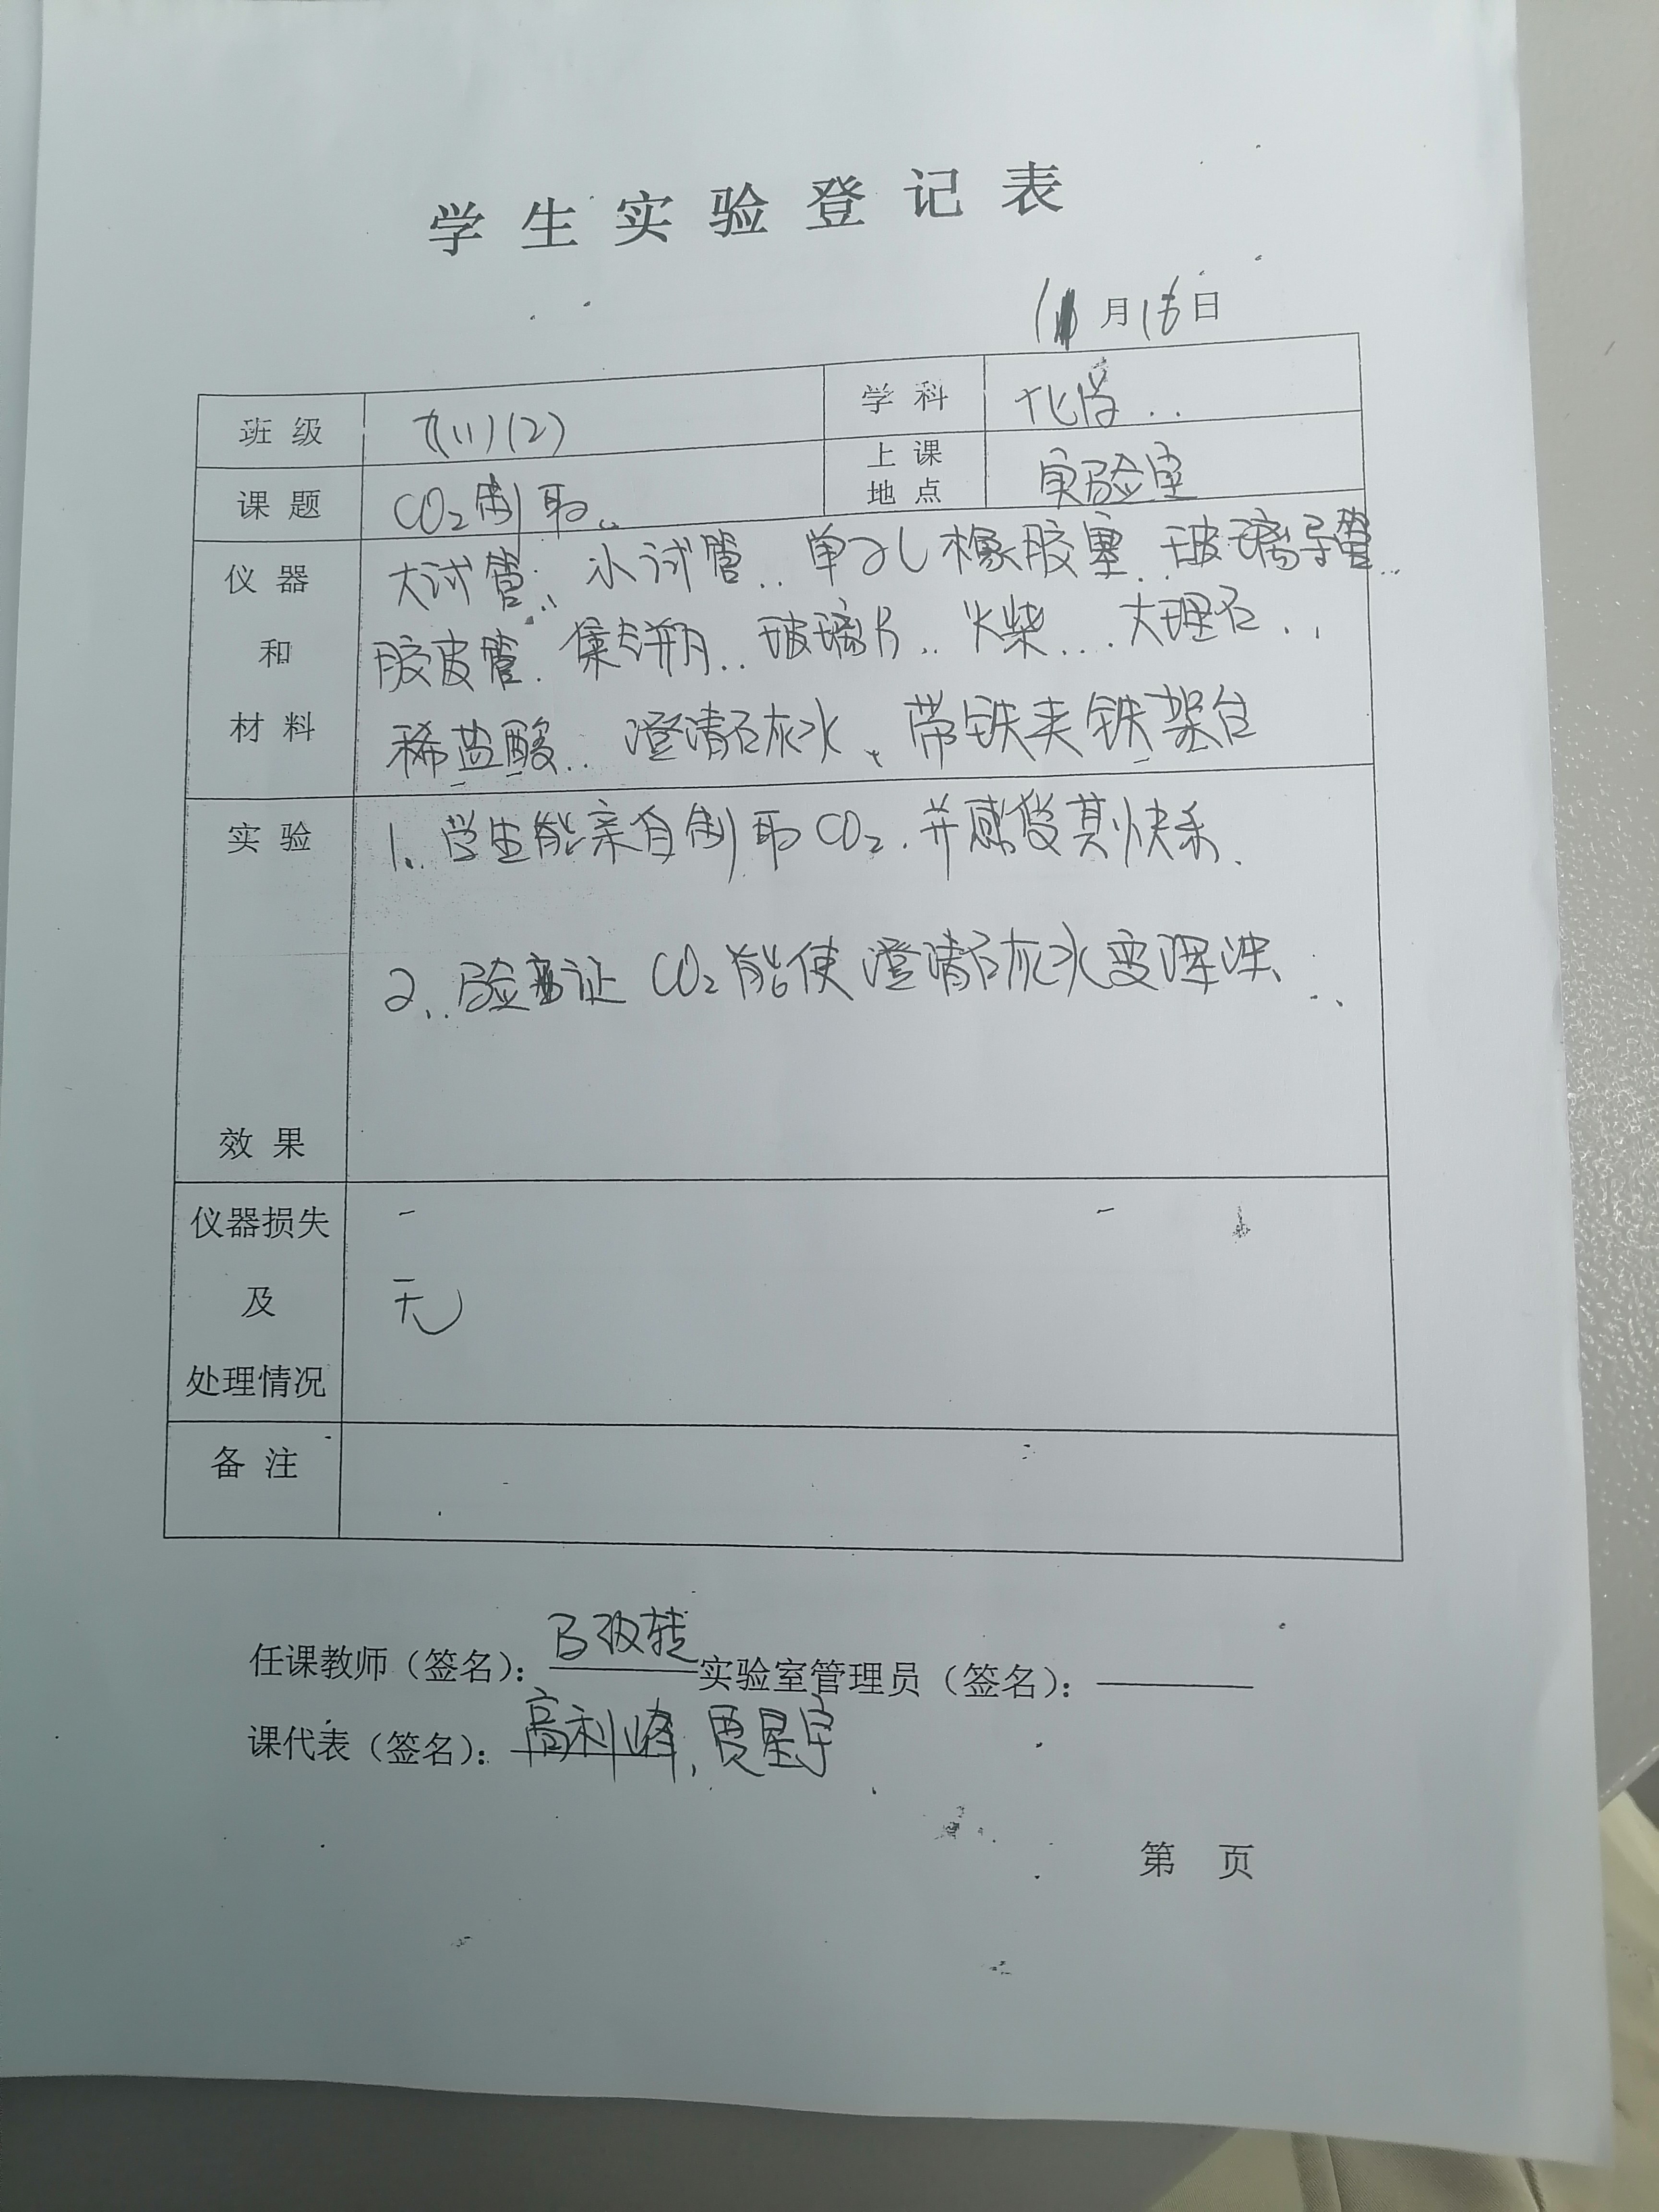 学生实验登记表
11月16日
班级 九(1)(2) 学科 化学
课题 CO2制取 上课地点 实验室
仪器和材料
大试管、小试管、单孔橡胶塞、玻璃导管
胶皮管、集气瓶、玻璃片、火柴、大理石、
稀盐酸、澄清石灰水、带铁夹铁架台
实验效果
1、学生能亲自制取CO2,并感受其快乐、
2、验证CO2能使澄清石灰水变浑浊、
仪器损失及处理情况
无
备注
任课教师(签名): 实验室管理员(签名):
课代表(签名): 高利峰,贾星宇
第 页